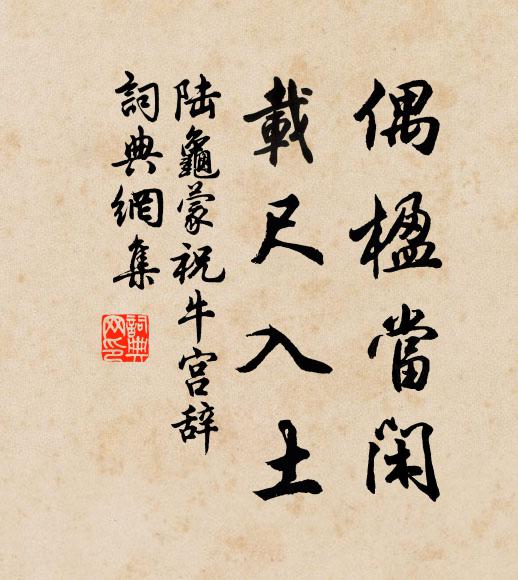 偶楹當閑
載尺入土
陆龜蒙祝牛宫辞
詞典網集
詞典
网印